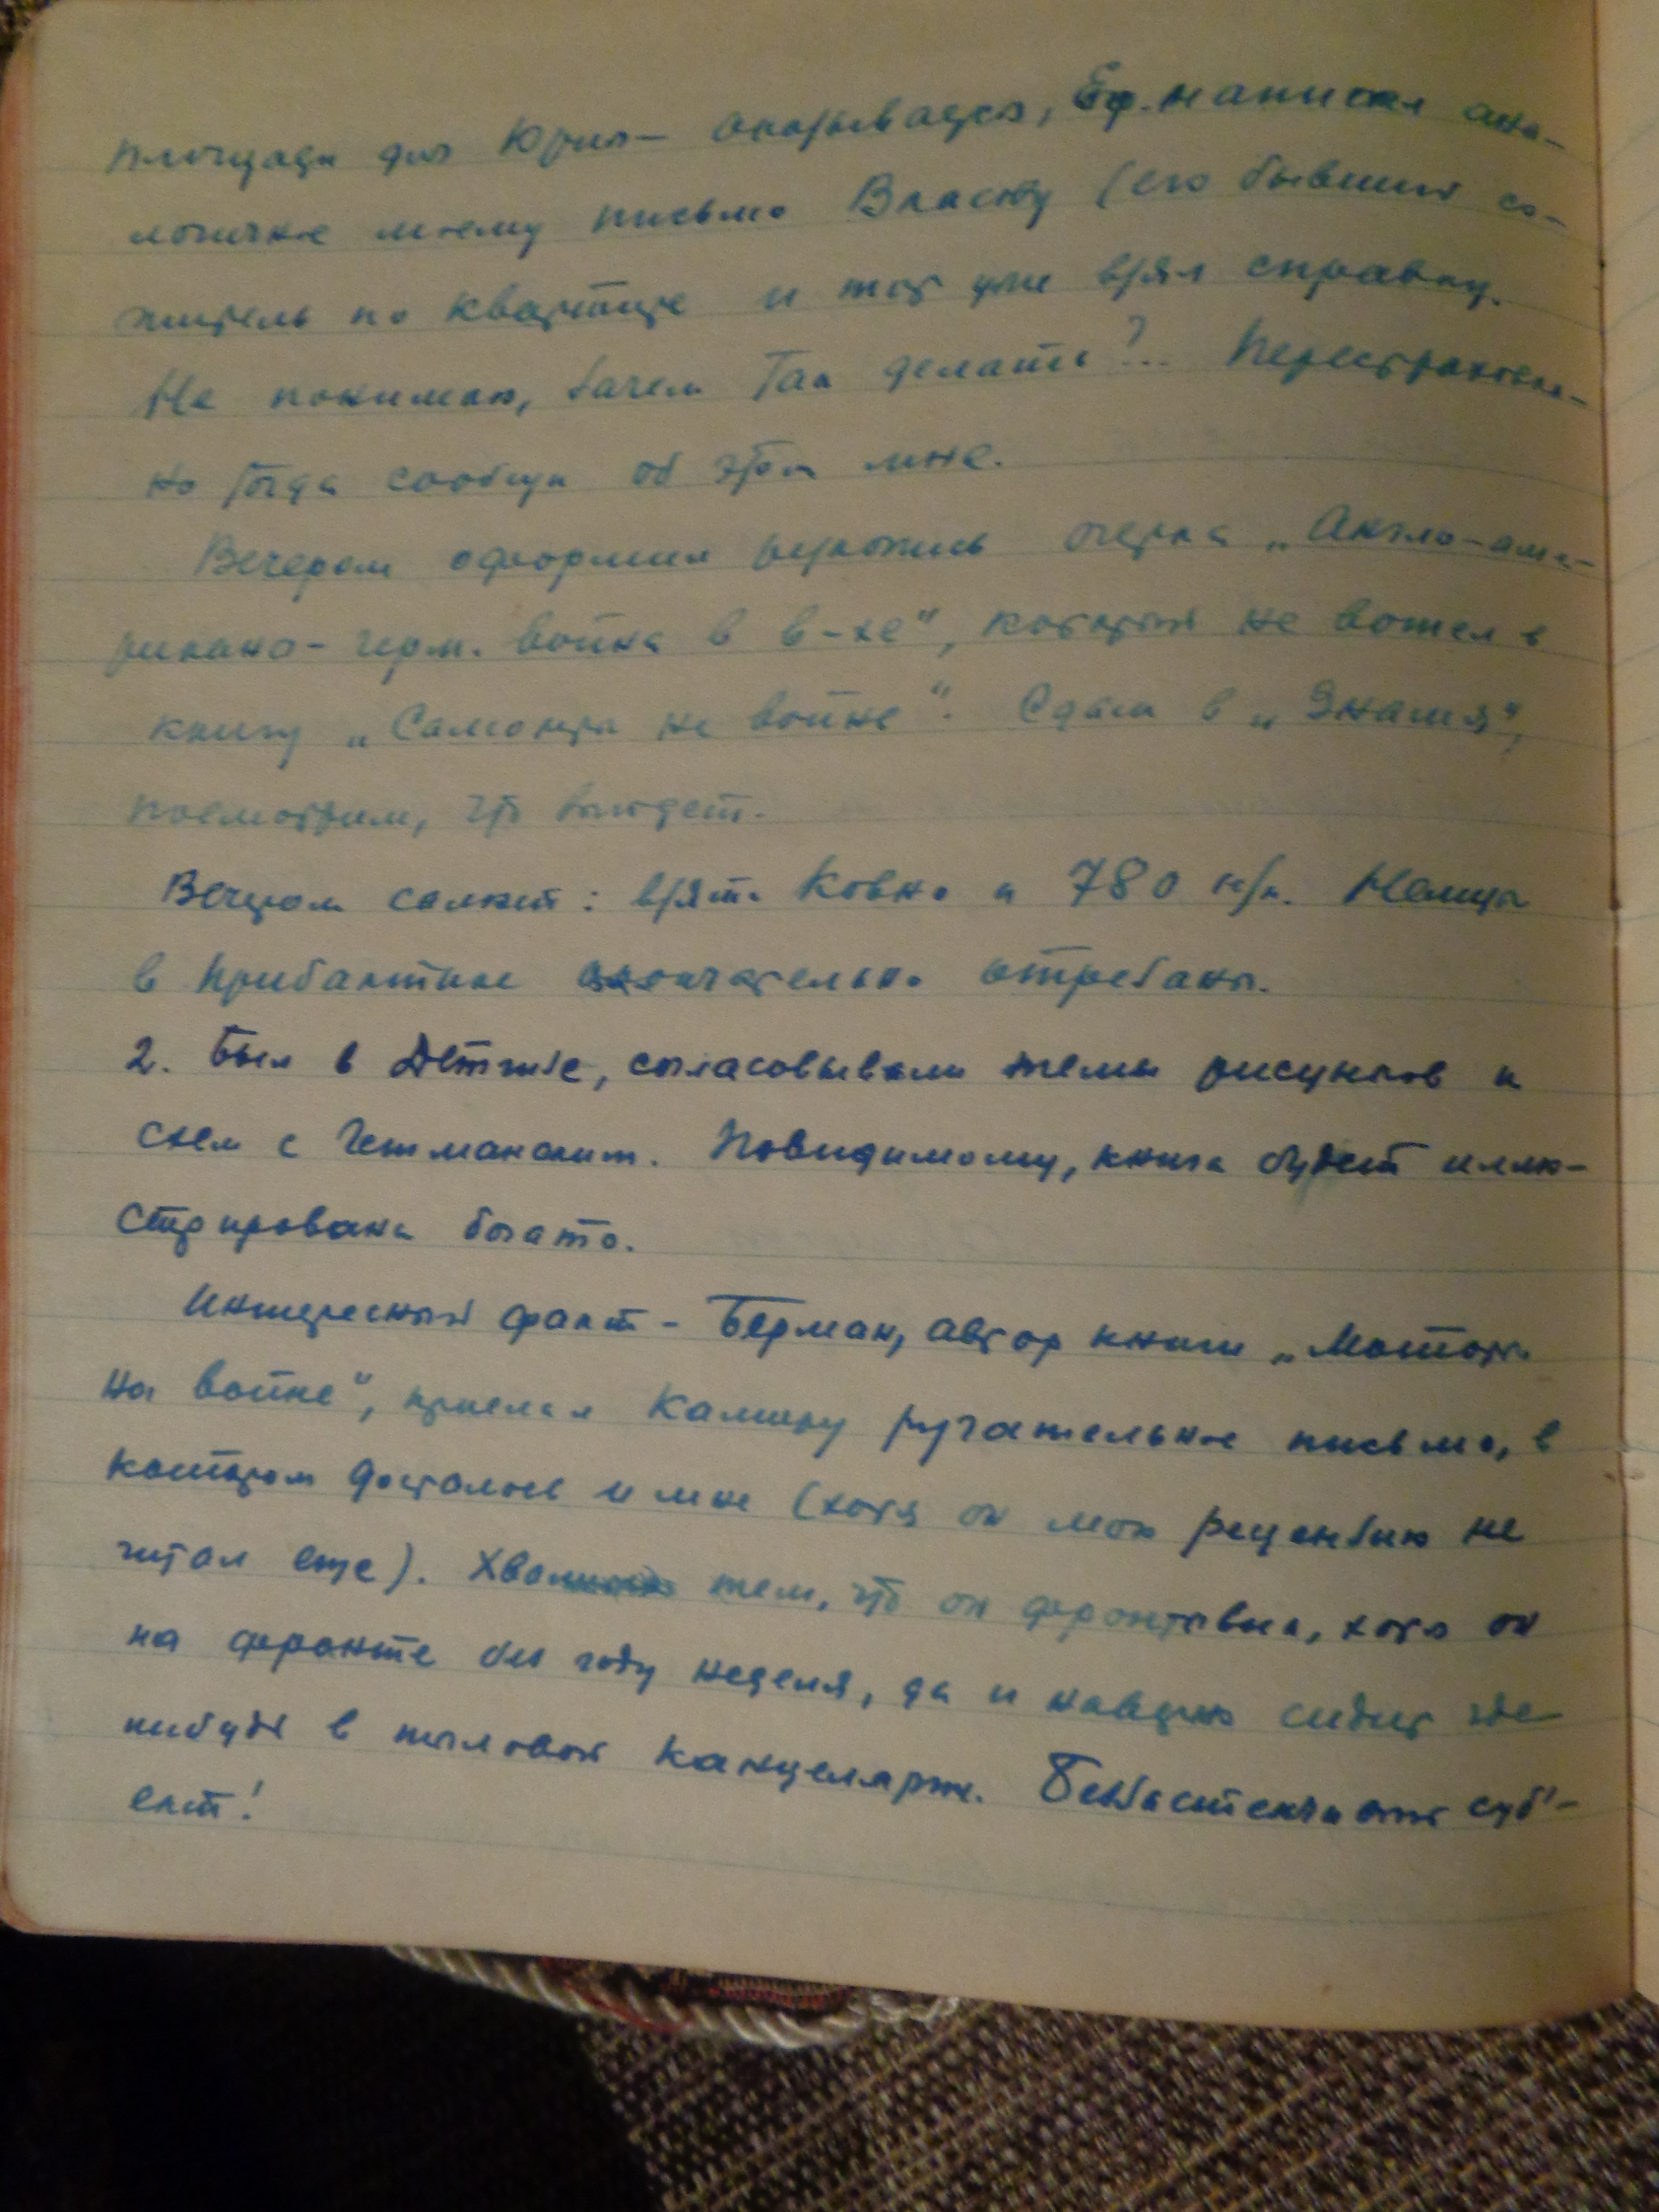 площади для Юрия – оказывается, Еф. написал ана-
логичное моему письмо Власову (его бывший со-
житель по квартире и тот уже взял справку.
Не понимаю, зачем так делать?...
но тогда сообщи об этом мне.
Вечером оформил рукопись очерка „Англо-аме-
рикано-герм. война в в-хе", который не вошел в
книгу „Самолеты на войне". Сдам в „Знамя",
посмотрим, что выйдет.
Вечером салют: взято Ковно и 780 н/п. Немцы
в Прибалтике окончательно отрезаны.
2. Был в Детгизе, согласовывали темы рисунков и
схем с Гетманским. Повидимому, книга будет иллю-
стрирована богато.
Интересный факт – Берман, автор книги „Моторы
на войне", прислал Камиру ругательное письмо, в
котором досталось и мне (хотя он мою рецензию не
читал еще). тем, что он фронтовик, хотя он
на фронте без году неделя, да и наверно сидит где-
нибудь в тыловой канцелярии. Беззастенчивый суб'-
ект!